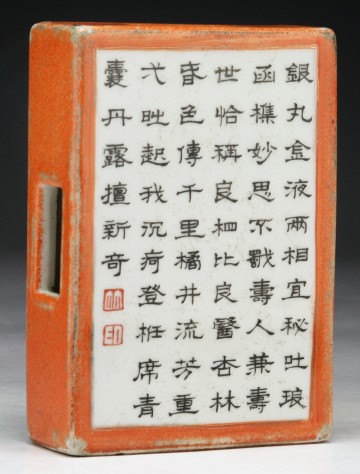 銀丸金液兩相宜秘吐琅
函樵妙思不壽人兼壽
世恰稱良相比良醫杏林
色傳千里橘井流芳重
弌时起我沉疴登袵席青
囊丹露擅新奇